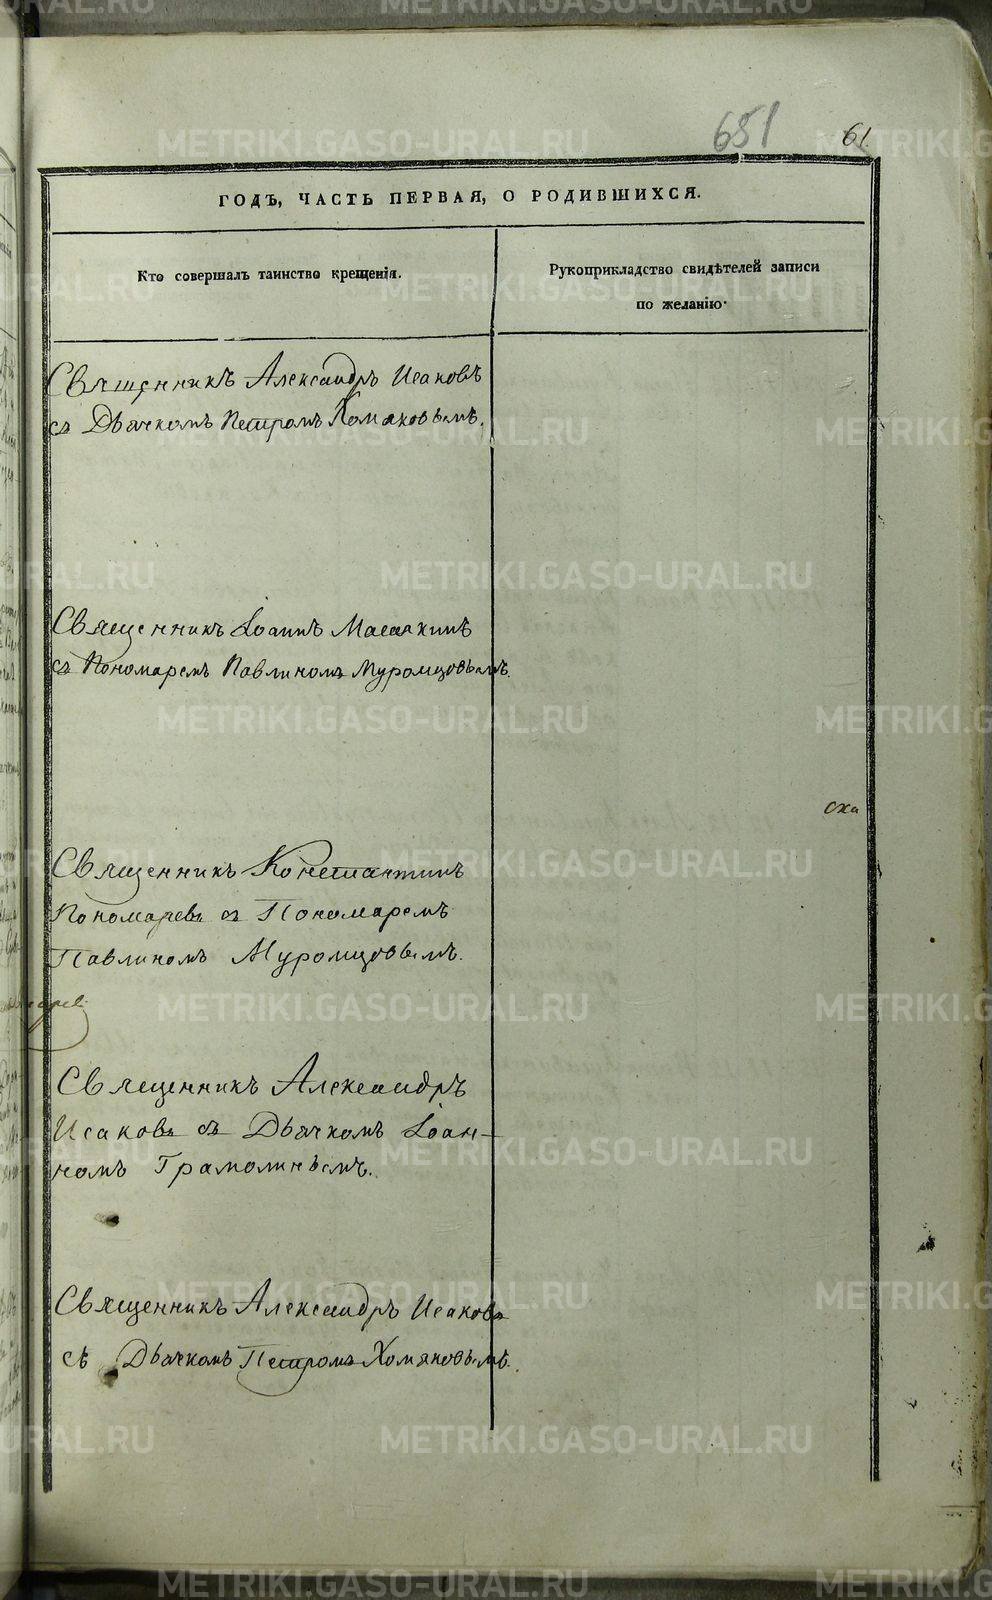 651
61
ГОДЪ, ЧАСТЬ ПЕРВАЯ, О РОДИВШИХСЯ.
Кто совершалъ таинство крещенія.
Рукоприкладство свидѣтелей записи
по желанію.
Священникъ Александръ Исаковъ
съ Дьячкомъ Петромъ Хомяковымъ.
Священникъ Іоаннъ
съ Пономаремъ Павлиномъ Муромцовымъ.
ска
Священникъ Константинъ
Пономаревъ съ Пономаремъ
Павлиномъ Муромцовымъ.
Священникъ Александръ
Исаковъ съ Дьячкомъ Іоан-
номъ Грамолинымъ.
Священникъ Александръ Исаковъ
съ Дьячкомъ Петромъ Хомяковымъ.
METRIKI.GASO-URAL.RU